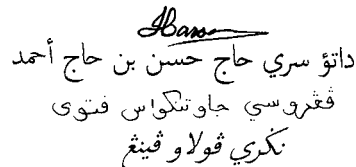 Hassan
داتؤ سري حاج حسن بن حاج أحمد
ڤڠروسي جاوتنكواس فتوى
نݢري ڤولاو ڤينڠ